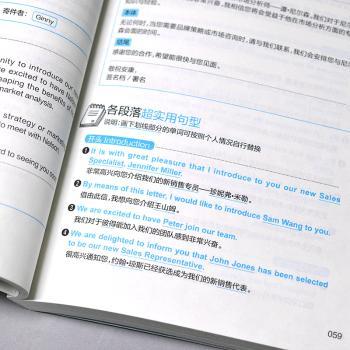 寄件者： Ginny
nity to introduce our
excited to have Nelson
eaping the benefits of
market analysis.
strategy or market
to meet with Nelson.
d to seeing you soon.
本体
无论何时，当您需要品牌策略或市场咨询时，请与我们联系，我们会安排您与尼
森会面的。
结尾
感谢您的合作，希望能很快与您见面。
敬祝安康，
签名档 / 署名
各段落超实用句型
说明：画下划线部分的单词可按照个人情况自行替换
开头 Introduction
1 It is with great pleasure that I introduce to you our new Sales
Specialist, Jennifer Miller.
非常高兴向您介绍我们的新销售专员——珍妮弗·米勒。
2 By means of this letter, I would like to introduce Sam Wang to you.
借由此信，我想向您介绍王山姆。
3 We are excited to have Peter join our team.
我们对于彼得能加入我们的团队感到非常兴奋。
4 We are delighted to inform you that John Jones has been selected
to be our new Sales Representative.
很高兴通知您，约翰·琼斯已经获选成为我们的新销售代表。
059